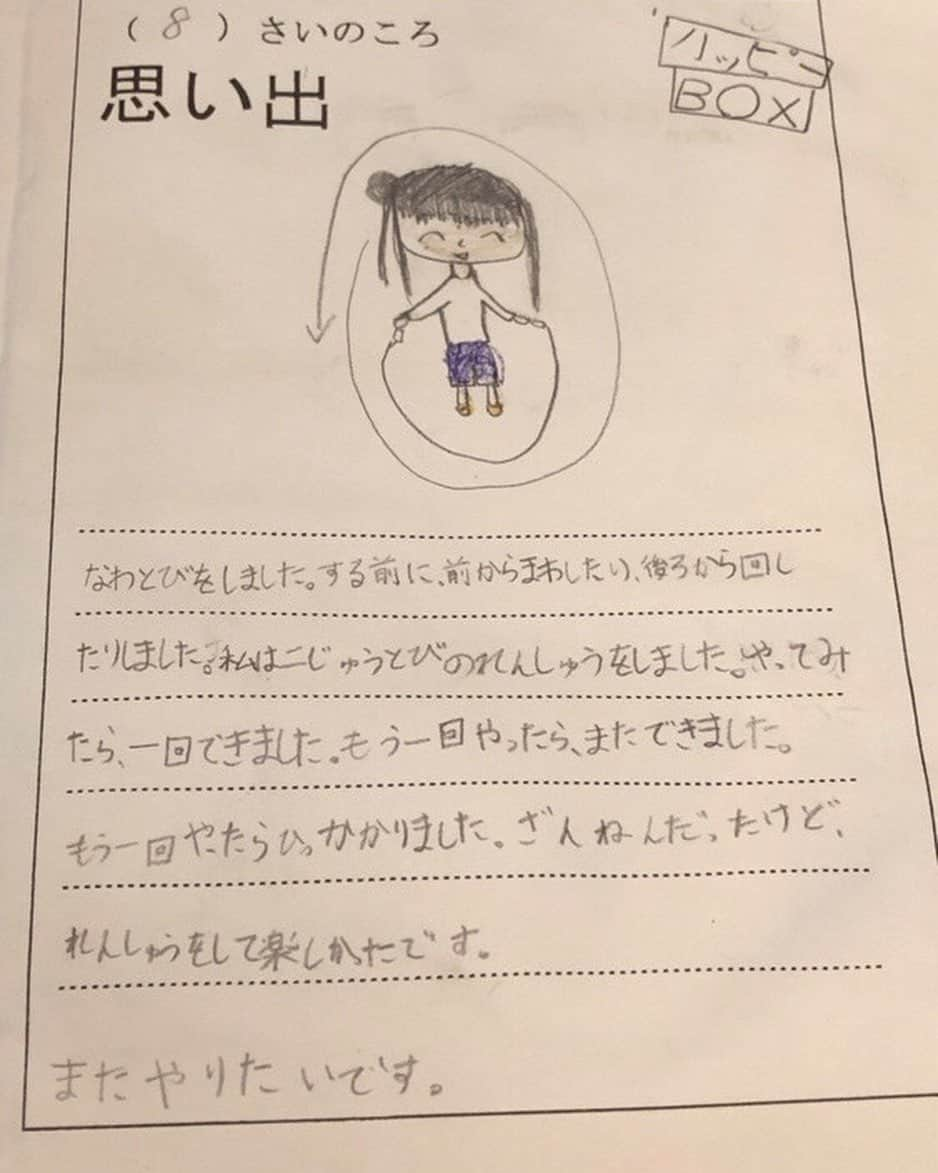 （8）さいのころ
思い出
ハッピー
BOX
なわとびをしました。する前に、前からまわしたり、後ろから回し
たりしました。私は二じゅうとびのれんしゅうをしました。やってみ
たら、一回できました。もう一回やったら、またできました。
もう一回やったらひっかかりました。ざんねんだったけど、
れんしゅうをして楽しかったです。
またやりたいです。